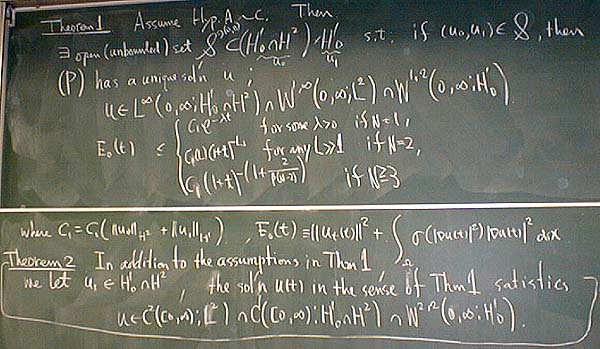 Theorem 1 Assume Hyp. A ~ C. Then
∃ open (unbounded) set S ⊂ (H¹₀∩H²) × H¹₀ s.t. if (u₀,u₁) ∈ S, then
u₀ u₁
(P) has a unique sol'n u,
u ∈ L^∞(0,∞; H¹₀∩H²) ∩ W^{1,∞}(0,∞; L²) ∩ W^{1,2}(0,∞; H¹₀).
E₀(t) ≤ { C₁ e^{-λt} for some λ>0 if N=1,
C₁(L)(1+t)^{-L} for any L≫1 if N=2,
C₁(1+t)^{-(1+ 2/(N-2))} if N≧3
where C₁ = C₁(‖u₀‖_{H²} + ‖u₁‖_{H¹}), E₀(t) ≡ ‖u_t(t)‖² + ∫_Ω σ(|∇u(t)|²)|∇u(t)|² dx
Theorem 2 In addition to the assumptions in Thm 1
we let u₁ ∈ H¹₀∩H², the sol'n u(t) in the sense of Thm 1 satistics
u ∈ C²([0,∞); L²) ∩ C¹([0,∞); H¹₀∩H²) ∩ W^{2,2}(0,∞; H¹₀).